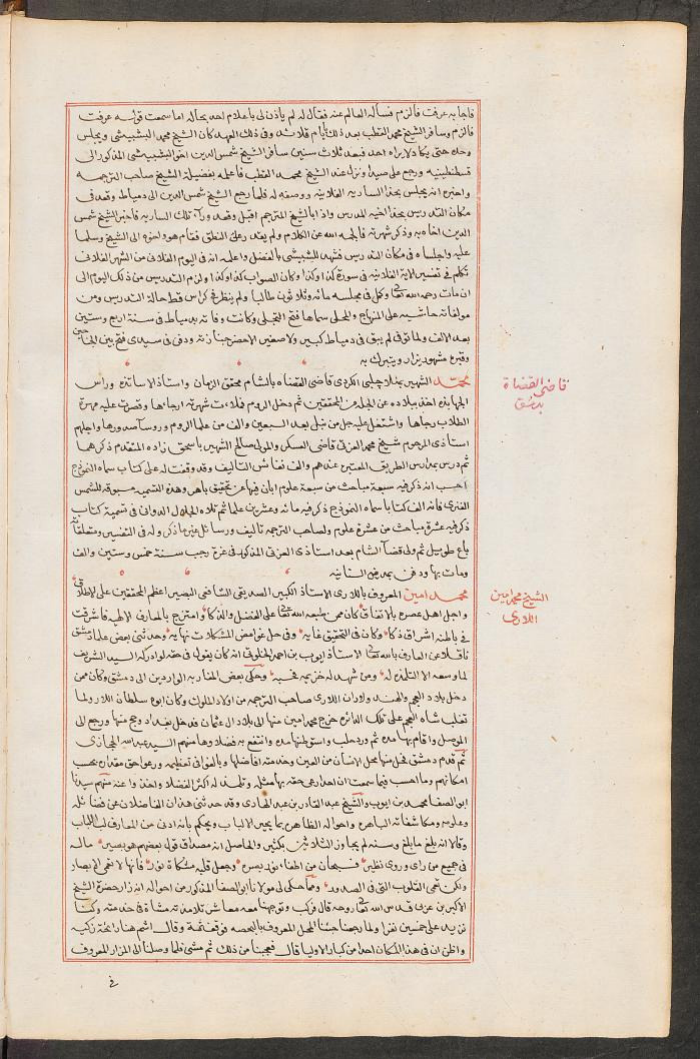 فاجابه عرفت فالزم فسأله العالم عنه فقال له لم ياذن لي باعلام احد بحاله اما سمعت قوله عرفت
فالزم وسافر الشيخ محمد القطب بعد ذلك بأيام قلائد وفي ذلك العهد كان الشيخ محمد البشبيشي ويجلس
وحده حتى يكاد لا يراه احد فبعد ثلاث سنين سافر الشيخ شمس الدين اخو البشبيشي المذكور الى
قسطنطينيه ورجع على صيدا ونزل عند الشيخ محمد القطب فاعلمه بفضيلة الشيخ صاحب الترجمه
واخبره انه يجلس بحذا الساريه الفلانيه ووصفه له فلما رجع الشيخ شمس الدين الى دمياط وقعد في
مكان التدريس بحذا اخيه للدرس واذا بالشيخ المترجم اقبل وقعد وراء تلك الساريه فاخبر الشيخ شمس
الدين اخاه به وذكر شهرته فالجمه الله عن الكلام ولم يقدر على النطق فقام هو واخوه الى الشيخ وسلما
عليه واجلساه في مكان التدريس فشهد للبشبيشي بالفضل واعلمه انه في اليوم الفلاني من الشهر الفلاني
تكلم في تفسير الاية الفلانيه في سورة كذا وكذا وكان الصواب كذا وكذا ولزم التدريس من ذلك اليوم الى
ان مات رحمه الله تعالى وكل في مجلسه مائه وثلاثون طالبا ولم ينظر في كراس قط حالة التدريس ومن
مولفاته حاشيه على المنهاج والمحلى سماها فتح التجلى وكانت وفاته بدمياط في سنة اربع وستين
بعد الالف ولما توفي لم يبق في دمياط كبير ولا صغير الا حضر جنازته ودفن في سيدى فتح بين الجناحين
وقبره مشهور يزار ويتبرك به
محمد الشهير بملا چلبى الكردى قاضى القضاه بالشام محقق الزمان واستاذ الاساتذه وراس
الجهابذه اخذ ببلاده عن الجله من المحققين ثم دخل الروم فملات شهرته ارجاءها وقصرت عليه مهرة
الطلاب رجاها واشتغل عليه جل من نبل بعد السبعين والف من علما الروم وروسا صدورها واجلهم
استاذى المرحوم شيخ محمد العزتى قاضى العسكر والمولى صالح الشهير باسحق زاده المتقدم ذكرهما
ثم درس بمدارس الطريق المعتبر عندهم والف نفائس التاليف وقد وقفت له على كتاب سماه انموذج
احسب انه ذكر فيه سبعة مباحث من سبعة علوم ابان فيها عن تحقيق باهر وهذه التسميه مسبوقه للشمس
الفنرى فانه الف كتابا سماه انموذج ذكر فيه مائه وعشرين علما ثم تلاه الجلال الدوانى في تسمية كتاب
ذكر فيه عشرة مباحث من عشرة علوم ولصاحب الترجمه تاليف ورسائل غير ما ذكر وله في التفسير ومتعلقاته
باع طويل ثم ولى قضآ الشام بعد استاذى العزتى المذكور في غرة رجب سنة خمس وستين والف
ومات بها ودفن
محمد امين المعروف باللارى الاستاذ الكبير الصديقى الشافعى البصير اعظم المحققين على الاطلاق
واجل اهل عصره بالاتفاق كان ممن طبعه الله تعالى على الفضل والذكا وامتزج بالمعارف الالهيه فاشرقت
في باطنه اشراق ذكا وكان في التحقيق غايه وفي حل غوامض المشكلات نهايه وحدثنى بعض علما دمشق
ناقلا عن العارف بالله تعالى الاستاذ ايوب بن احمد الخلوتى انه كان يقول في حقه لو ادركه السيد الشريف
لما وسعه الا التلمذ له ومن شهد له خزيمه فحسبه وحكى بعض المغاربه الواردين الى دمشق وكان ممن
دخل بلاد العجم والهند واوران اللارى صاحب الترجمه من اولاد الملوك وكان ابوه سلطان اللار ولما
تغلب شاه العجم على تلك الدائره خرج محمد امين منها الى بلاد ال عثمان فدخل بغداد وحج منها ورجع الى
الموصل واقام بها مده ثم ورد حلب واستوطنها مده وانتفع به فضلاوها منهم السيد عبدالله الحجازى
ثم قدم دمشق فحل منها محل الانسان من العين وخدمته افاضلها وبالغوا في تعظيمه ورعوا حق مقداره بحسب
امكانهم وما احسب فيما سمعت ان احدا رعى حقه بها مثله وتلمذ له اكثر الفضلا واخذوا عنه منهم سيدنا
ابو الصفا محمد بن ايوب والشيخ عبد القادر بن عبد الهادى وقد حدثنى هذان الفاضلان عن فضائله
وعلومه ومكاشفاته الباهره واحواله الظاهره بما يحير الالباب ويحكم بانه اوتى من المعارف لب اللباب
وقالا انه بلغ ما بلغ وسنه لم يجاوز الثلاثين بكثير والحاصل انه مصداق قول بعضهم هو بصير ماله
في جميع من راى وروى نظير فسبحان من اطفا نور بصره وجعل قلبه مشكاة نور فانها لا تعمى الابصار
ولكن تعمى القلوب التى في الصدور ومما حكى لى مولانا ابو الصفا المذكور من احواله انه زار حضرة الشيخ
الاكبر بن عربى قدس الله تعالى روحه قال فركب وتوجهنا معه معاشر تلامذته مشاة في خدمته وكنا
نزيد على خمسين نفرا ولما رجعنا جئنا المحل المعروف بالبحصه فوقف وقال اشم هنا رائحة زكيه
واظن ان في هذا المكان احدا من كبار الاوليا قال فعجبنا من ذلك ثم مشى فلما وصلنا الى المزار المعروف
قاضى القضاة
بدمشق
الشيخ محمد امين
اللارى